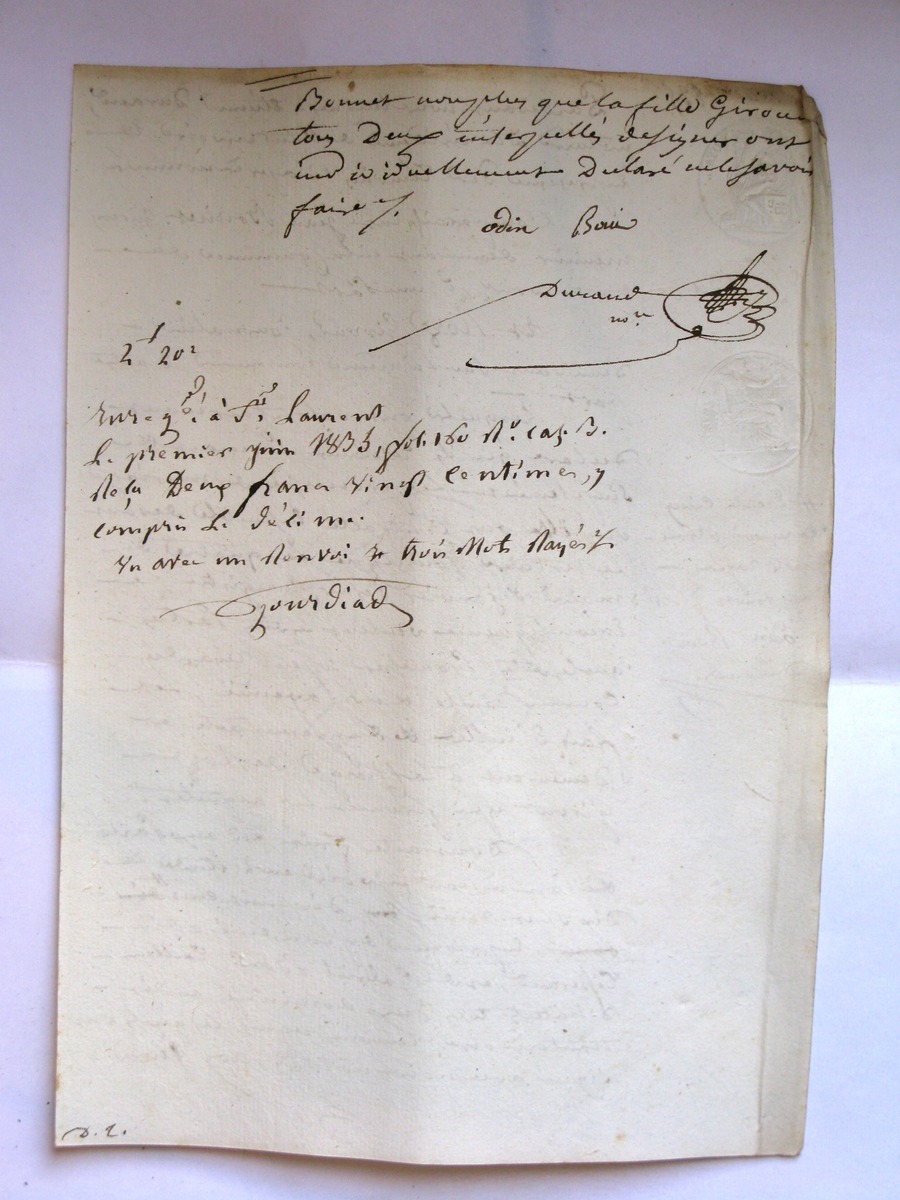 Bonnet non plus que la fille Giroud
tous Deux interpellés de signer ont
individuellement Declaré ne le savoir
faire
odin Boui
Durand
nore
2f 20c
Enregé à St Laurent
Le premier juin 1835, fol. 160 Ro. Cas. 3.
Reçu Deux francs vingt Centimes, y
Compris le décime.
un Renvoi & trois Mots Rayés
Gourdiad
D. 2.